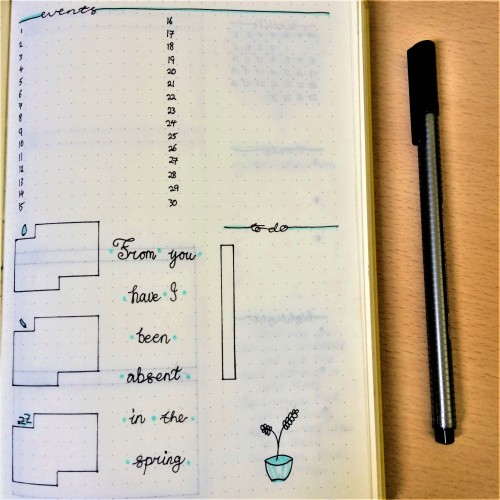 events
1
2
3
4
5
6
7
8
9
10
11
12
13
14
15
16
17
18
19
20
21
22
23
24
25
26
27
28
29
30
to do
From you
have I
been
absent
in the
spring
zz